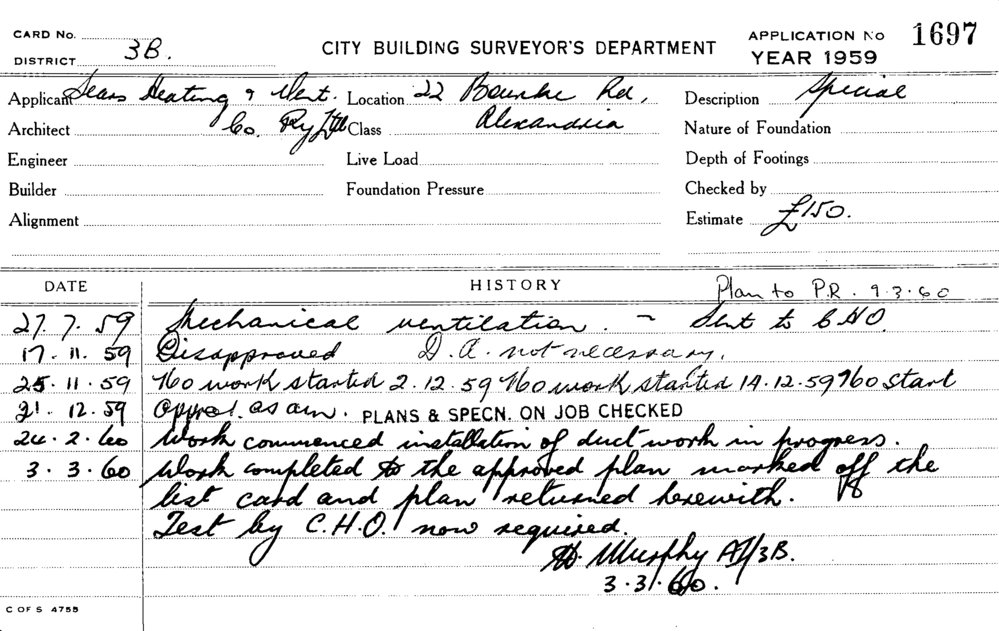 CARD No.
DISTRICT 3B.
CITY BUILDING SURVEYOR'S DEPARTMENT
APPLICATION No 1697
YEAR 1959
Applicant Sears Heating & Vent. Location 22 Bourke Rd, Description Special
Architect Co. Pty Ltd Class Alexandria Nature of Foundation
Engineer Live Load Depth of Footings
Builder Foundation Pressure Checked by
Alignment Estimate £150.
DATE HISTORY Plan to P.R. 9.3.60
27.7.59 Mechanical ventilation. - Sent to CHO.
17.11.59 Disapproved D.A. not necessary.
25.11.59 No work started 2.12.59 No work started 14.12.59 No start
21.12.59 Approl. as am. PLANS & SPECN. ON JOB CHECKED
24.2.60 Work commenced installation of duct work in progress.
3.3.60 Work completed to the approved plan marked off the
list card and plan returned herewith.
Test by C.H.O. now required.
H. Murphy 3B.
3.3.60.
C OF S 4755